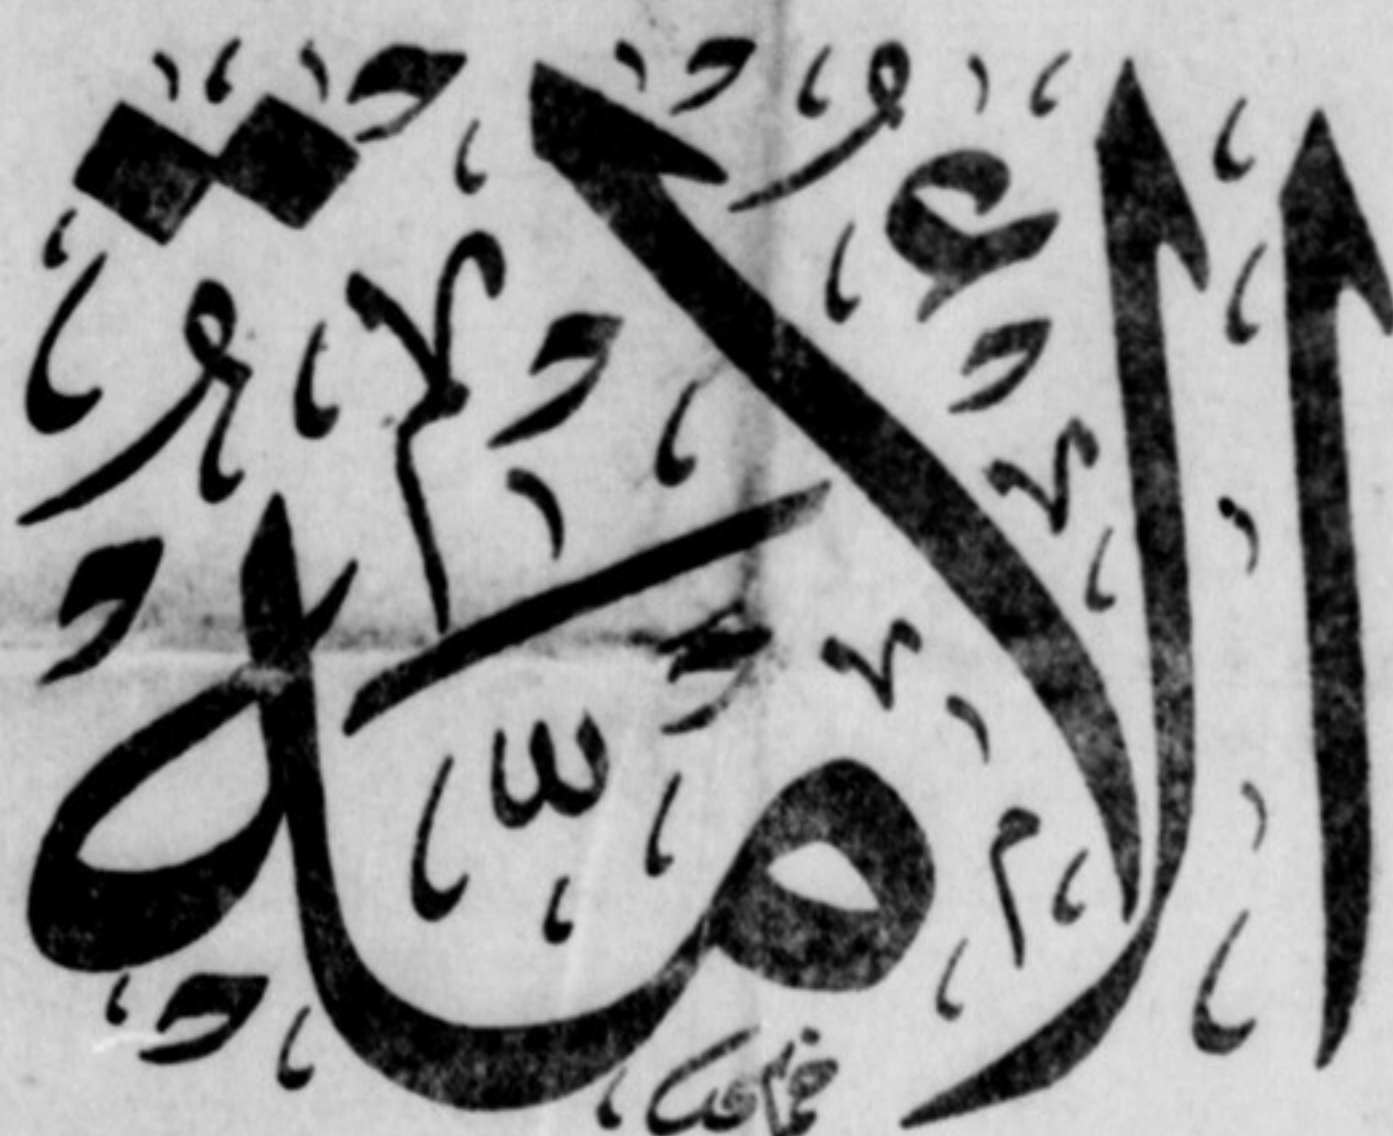 الأمّة